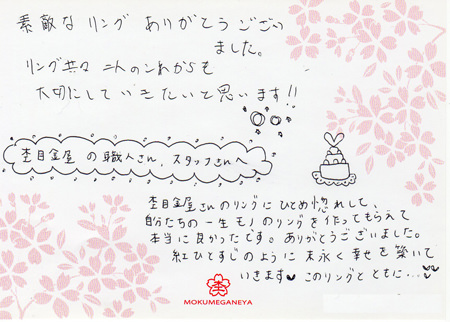 素敵な リング ありがとうござい
ました。
リング共々 二人のこれからも
大切にして いきたいと思います!!
杢目金屋 の 職人さん、スタッフさんへ
杢目金屋さんのリングに ひとめ惚れして、
自分たちの 一生モノ のリングを作ってもらえて
本当に 良かったです。ありがとうございました。
紅ひとすじのように 末永く 幸せを 築いて
いきます♥ このリングと ともに…♥♥
MOKUMEGANEYA